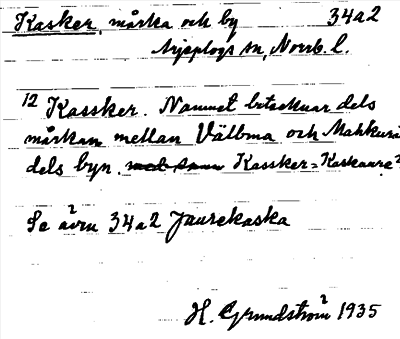 Kasker, mårka och by 34a2
Arjeplogs sn, Norrb. l.
12 Kassker. Namnet betecknar dels
mårkan mellan Välbma och Mahkurá
dels byn. Kassker = Kaskaure 2
Se även 34a2 Jaurekaska
H. Grundström 1935